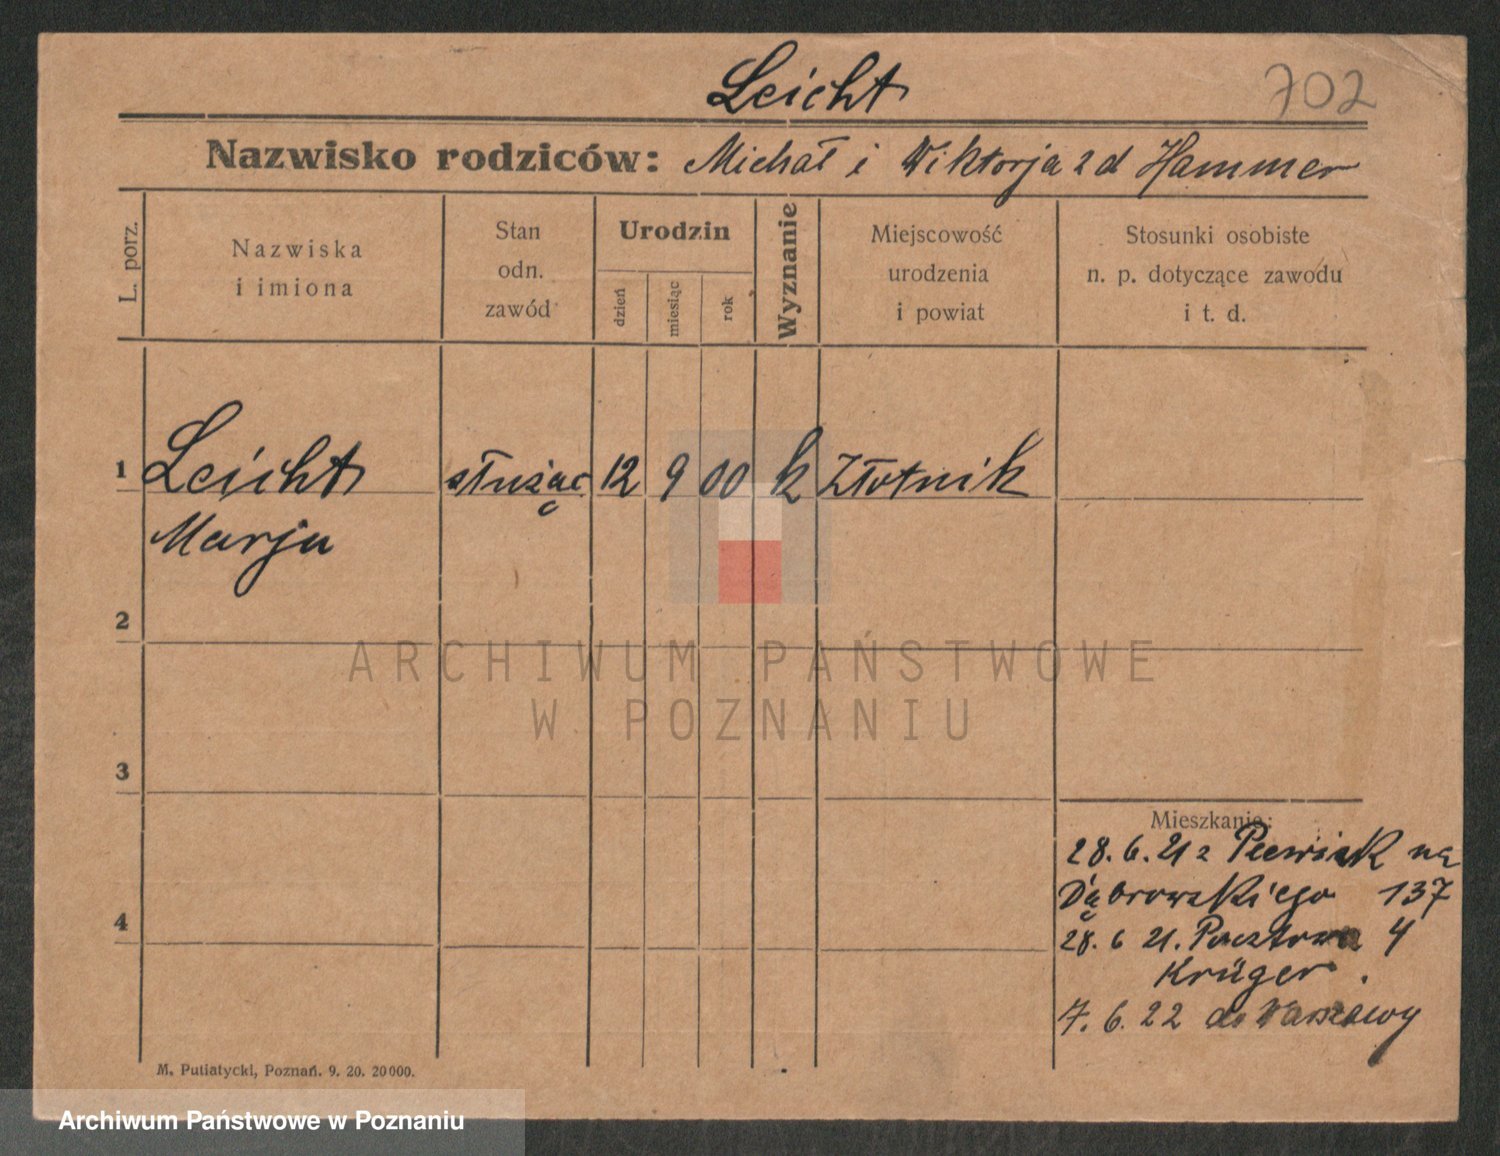 Leicht
702
Nazwisko rodziców: Michał i Wiktorja z d Hammer
L. porz.
Nazwiska
i imiona
Stan
odn.
zawód
Urodzin
dzień
miesiąc
rok
Wyznanie
Miejscowość
urodzenia
i powiat
Stosunki osobiste
n. p. dotyczące zawodu
i t. d.
1
Leicht
Marja
służąc
12
9
00
k
Złotnik
2
3
4
Mieszkanie:
28. 6. 21 z na
Dąbrowskiego 137
28. 6 21. Pocztowa 4
Krüger.
7. 6. 22 do Warszawy
M. Putiatycki, Poznań. 9. 20. 20000.
ARCHIWUM PAŃSTWOWE
W POZNANIU
Archiwum Państwowe w Poznaniu